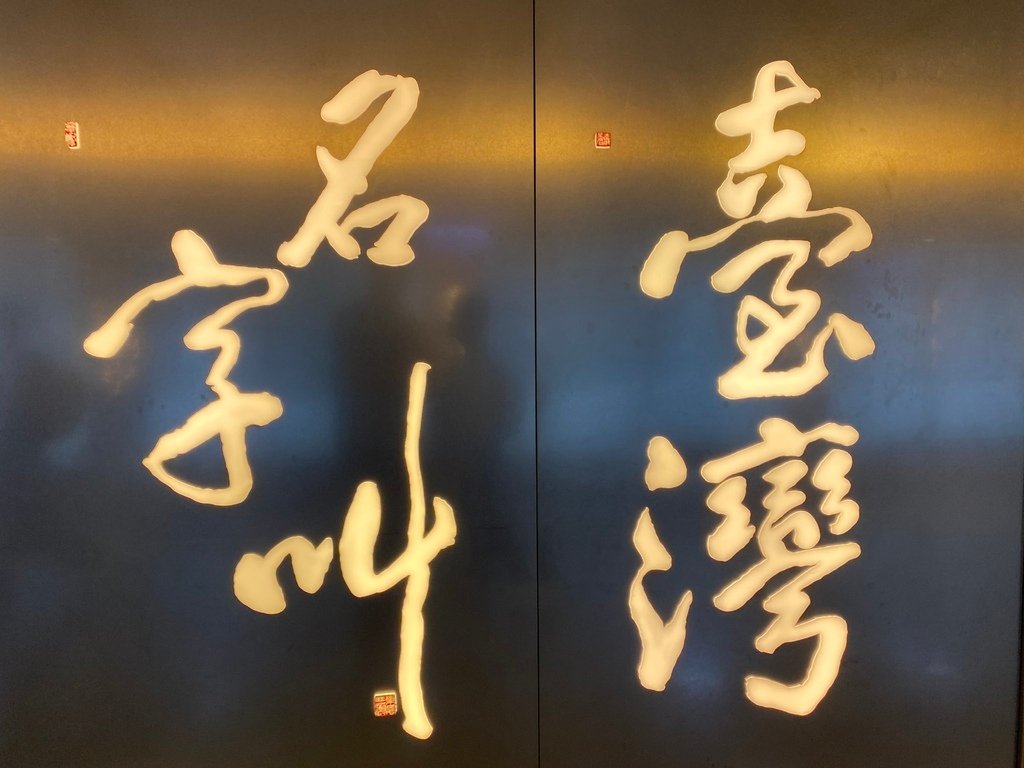 臺灣
名字叫